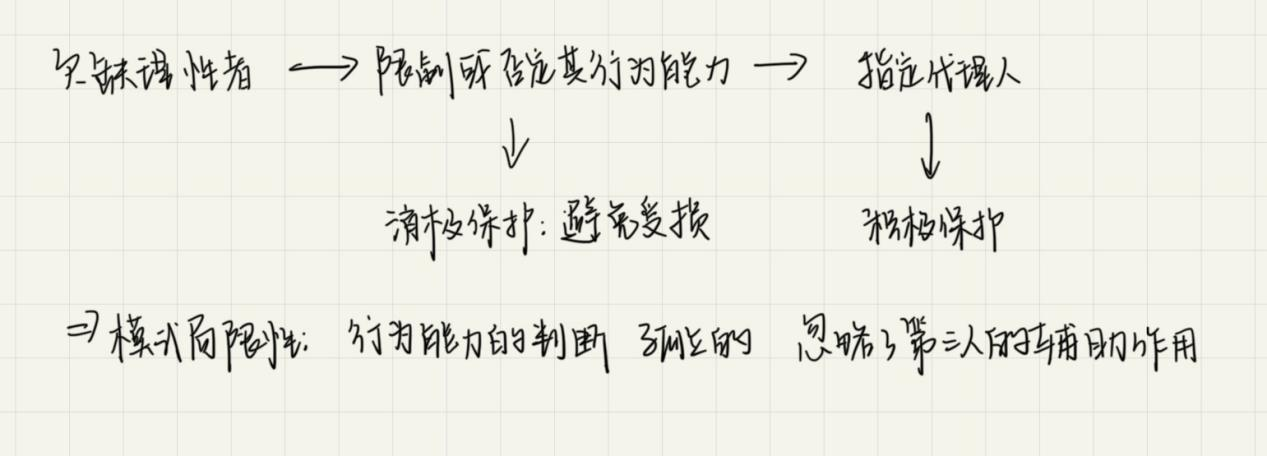 欠缺理性者 ⟷ 限制或否定其行为能力 → 指定代理人
↓ ↓
消极保护：避免受损 积极保护
⇒ 模式局限性：行为能力的判断 孤立的 忽略了第三人的辅助作用